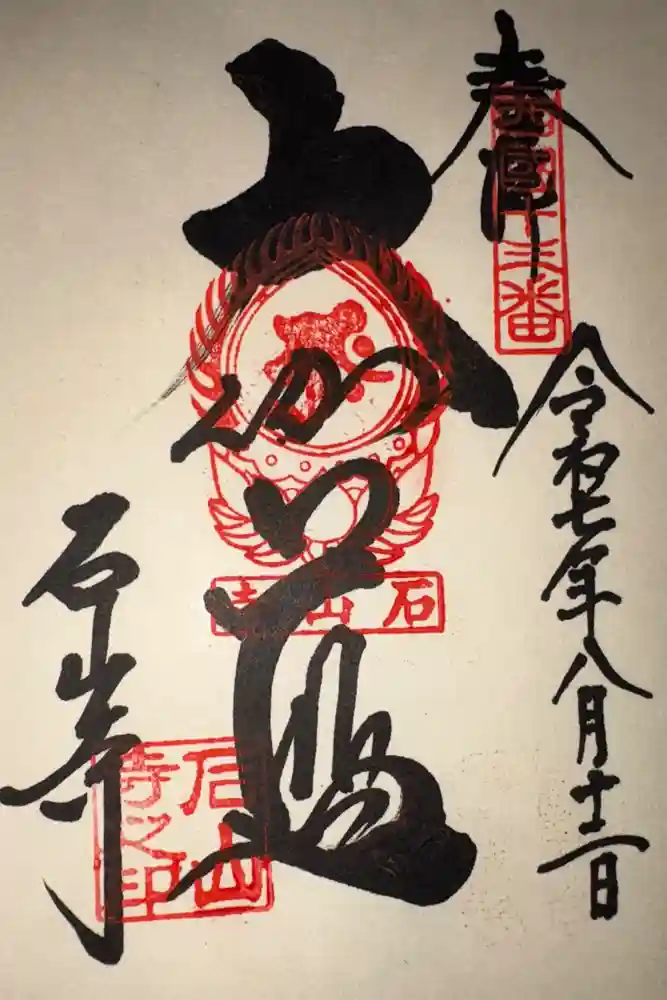 奉拝
西國十三番
令和七年八月十二日
大伽藍
石山寺
石山寺
石山寺之印